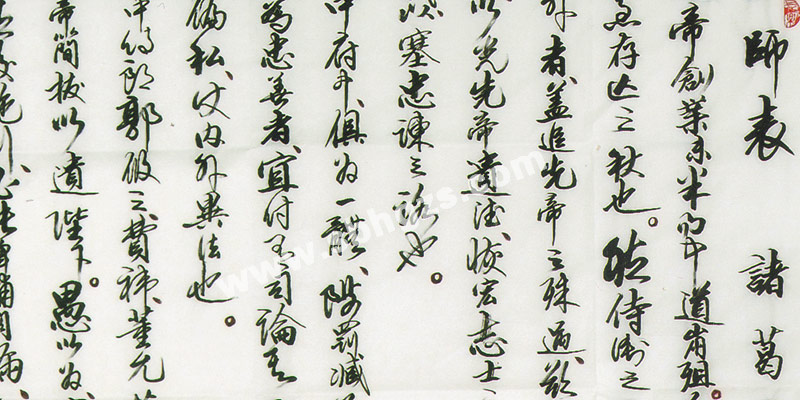 師表 諸葛
帝創業未半而中道崩殂
存亡之秋也。然侍衛之
外者、蓋追先帝之殊遇、欲
以光先帝遺德、恢宏志士
以塞忠諫之路也。
中府中、俱為一體、陟罰臧
為忠善者、宜付有司論其
偏私、使內外異法也。
中侍郎郭攸之費禕、董允
帝簡拔以遺陛下。愚以為